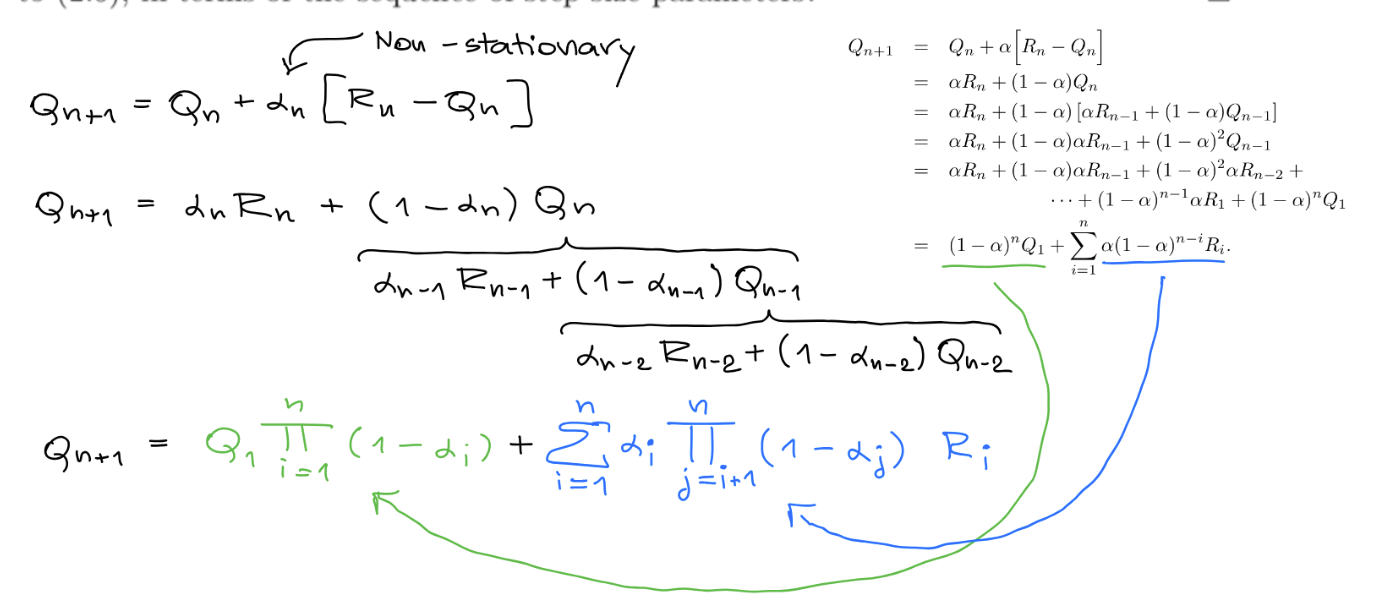 to (2.6), in terms of the sequence of step-size parameters.
Non-stationary
Qₙ₊₁ = Qₙ + αₙ [Rₙ − Qₙ]
Qₙ₊₁ = αₙ Rₙ + (1 − αₙ) Qₙ
αₙ₋₁ Rₙ₋₁ + (1 − αₙ₋₁) Qₙ₋₁
αₙ₋₂ Rₙ₋₂ + (1 − αₙ₋₂) Qₙ₋₂
Qₙ₊₁ = Q₁ ∏_{i=1}^{n} (1 − αᵢ) + ∑_{i=1}^{n} αᵢ ∏_{j=i+1}^{n} (1 − αⱼ) Rᵢ
Qₙ₊₁ = Qₙ + α[Rₙ − Qₙ]
= αRₙ + (1 − α)Qₙ
= αRₙ + (1 − α) [αRₙ₋₁ + (1 − α)Qₙ₋₁]
= αRₙ + (1 − α)αRₙ₋₁ + (1 − α)²Qₙ₋₁
= αRₙ + (1 − α)αRₙ₋₁ + (1 − α)²αRₙ₋₂ +
⋯ + (1 − α)ⁿ⁻¹αR₁ + (1 − α)ⁿQ₁
= (1 − α)ⁿQ₁ + ∑_{i=1}^{n} α(1 − α)ⁿ⁻ⁱRᵢ.